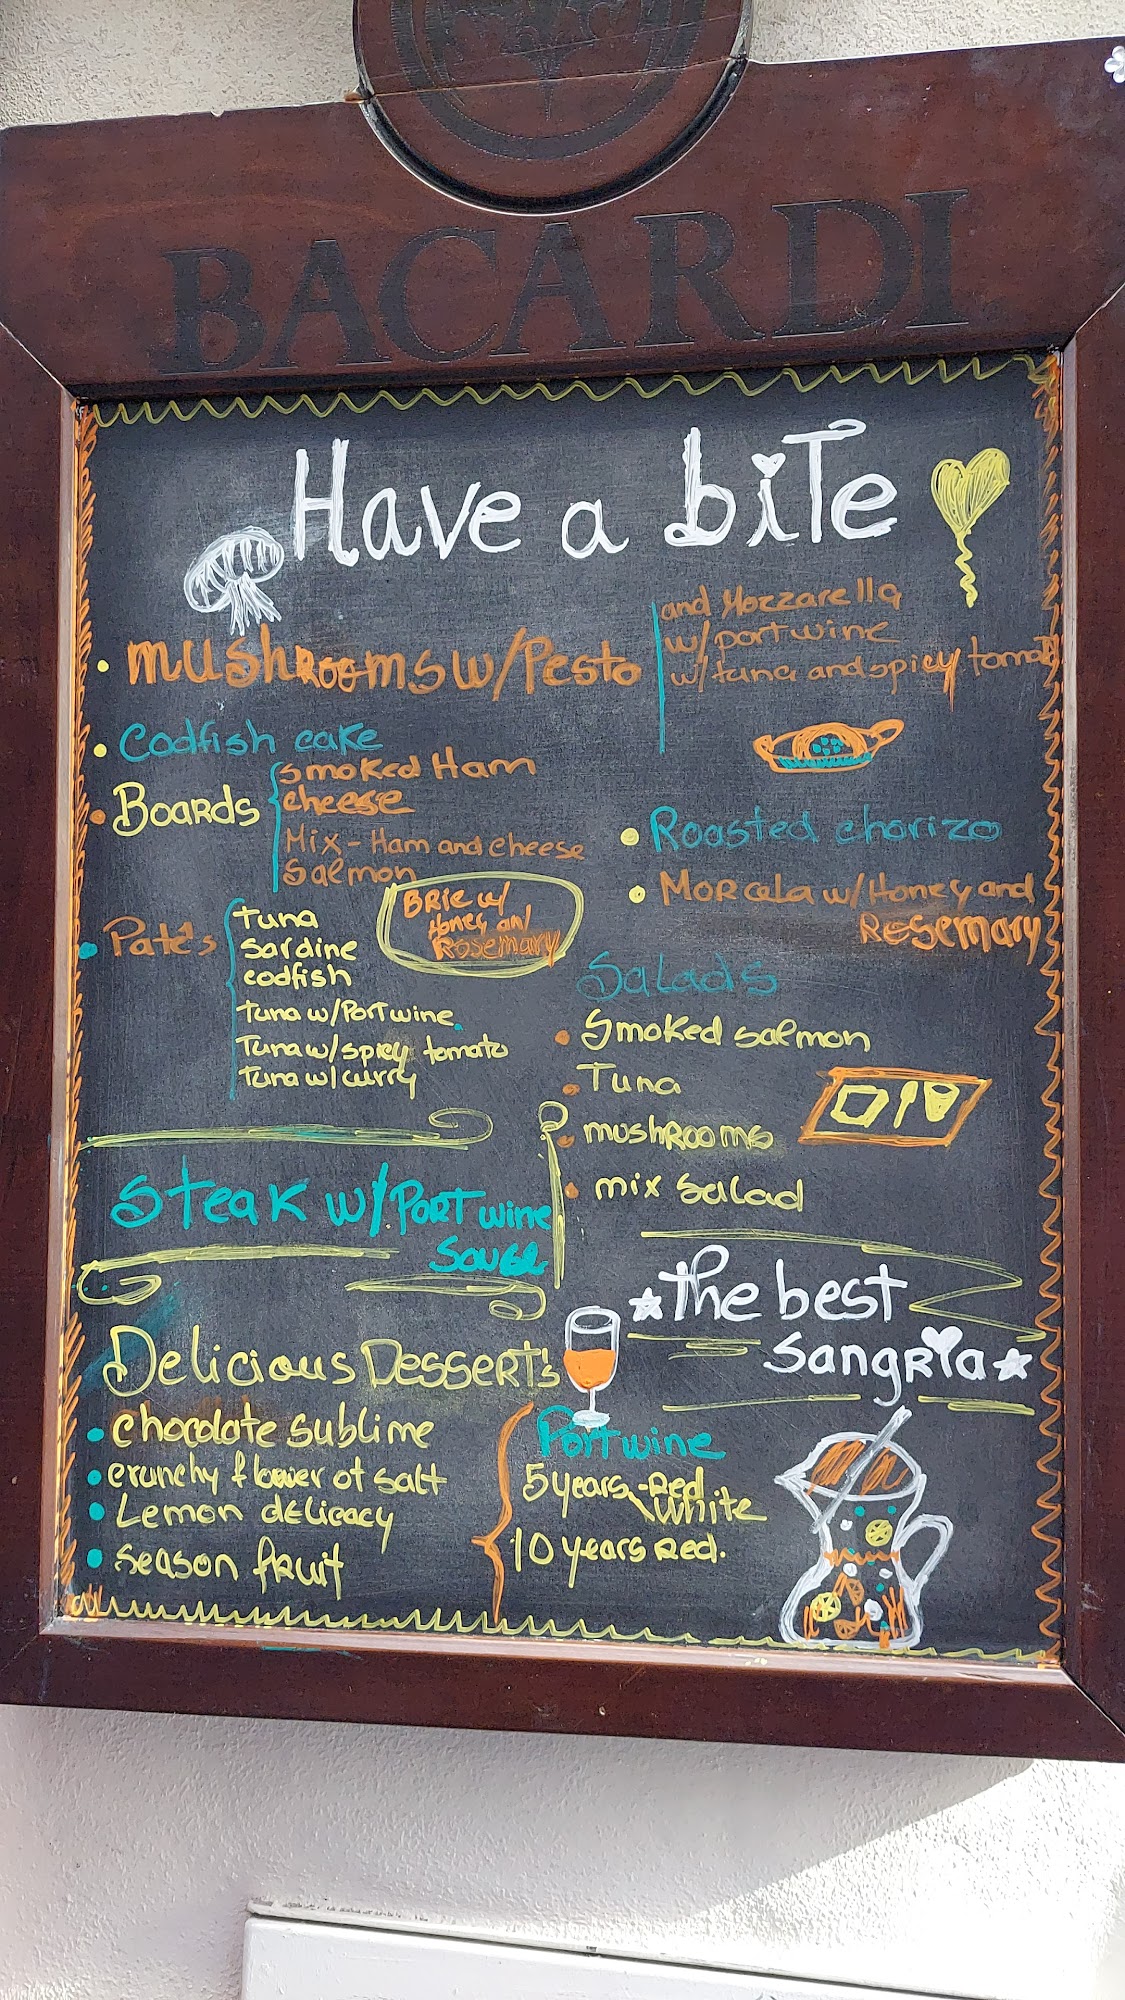 BACARDI
Have a biTe
mushRooms w/Pesto
and Mozzarella
w/portwine
w/tuna and spicy tomato
Codfish cake
Boards
Smoked Ham
cheese
Mix - Ham and cheese
Salmon
BRie w/
Honey an/
Rosemary
Roasted chorizo
Morcela w/Honey and
Rosemary
Pate's
tuna
Sardine
codfish
Tuna w/Port wine
Tuna w/spicy tomato
Tuna w/curry
Salads
Smoked salmon
Tuna
mushRooms
mix salad
Steak w/PORT wine
Sause
the best
SangRia
Delicious Dessert's
chocolate sublime
crunchy flower of salt
Lemon delicacy
season fruit
Port wine
5 years - Red
\White
10 years Red.